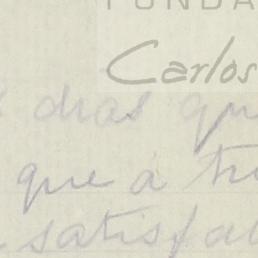 FUNDA
Carlos
dias que
que a
satisfa